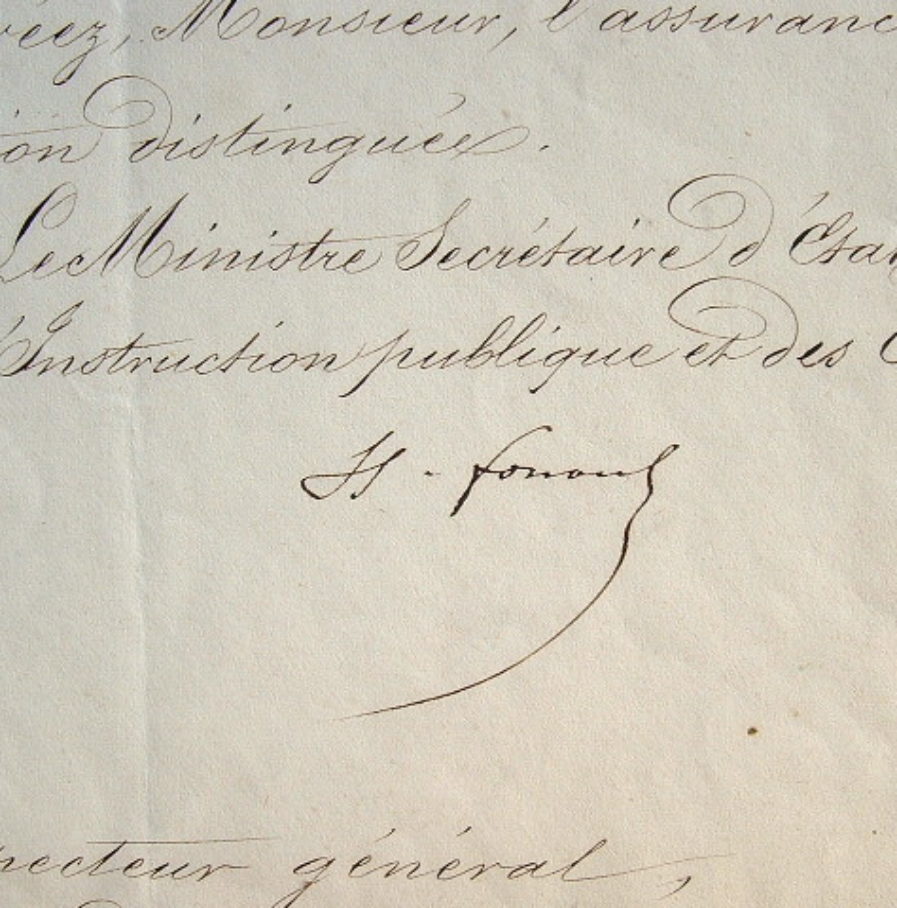 réez, Monsieur, l'assuranc
ion distinguée.
Le Ministre Secrétaire d'État
l'Instruction publique et des C
H. fortoul
pecteur général,